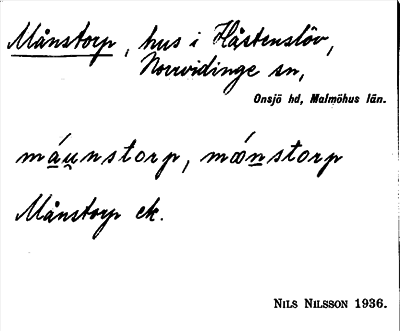 Månstorp, hus i Håstenslöv,
Norrvidinge sn,
Onsjö hd, Malmöhus län.
máu̯nstorp, mǿnstorp
Månstorp ek.
NILS NILSSON 1936.